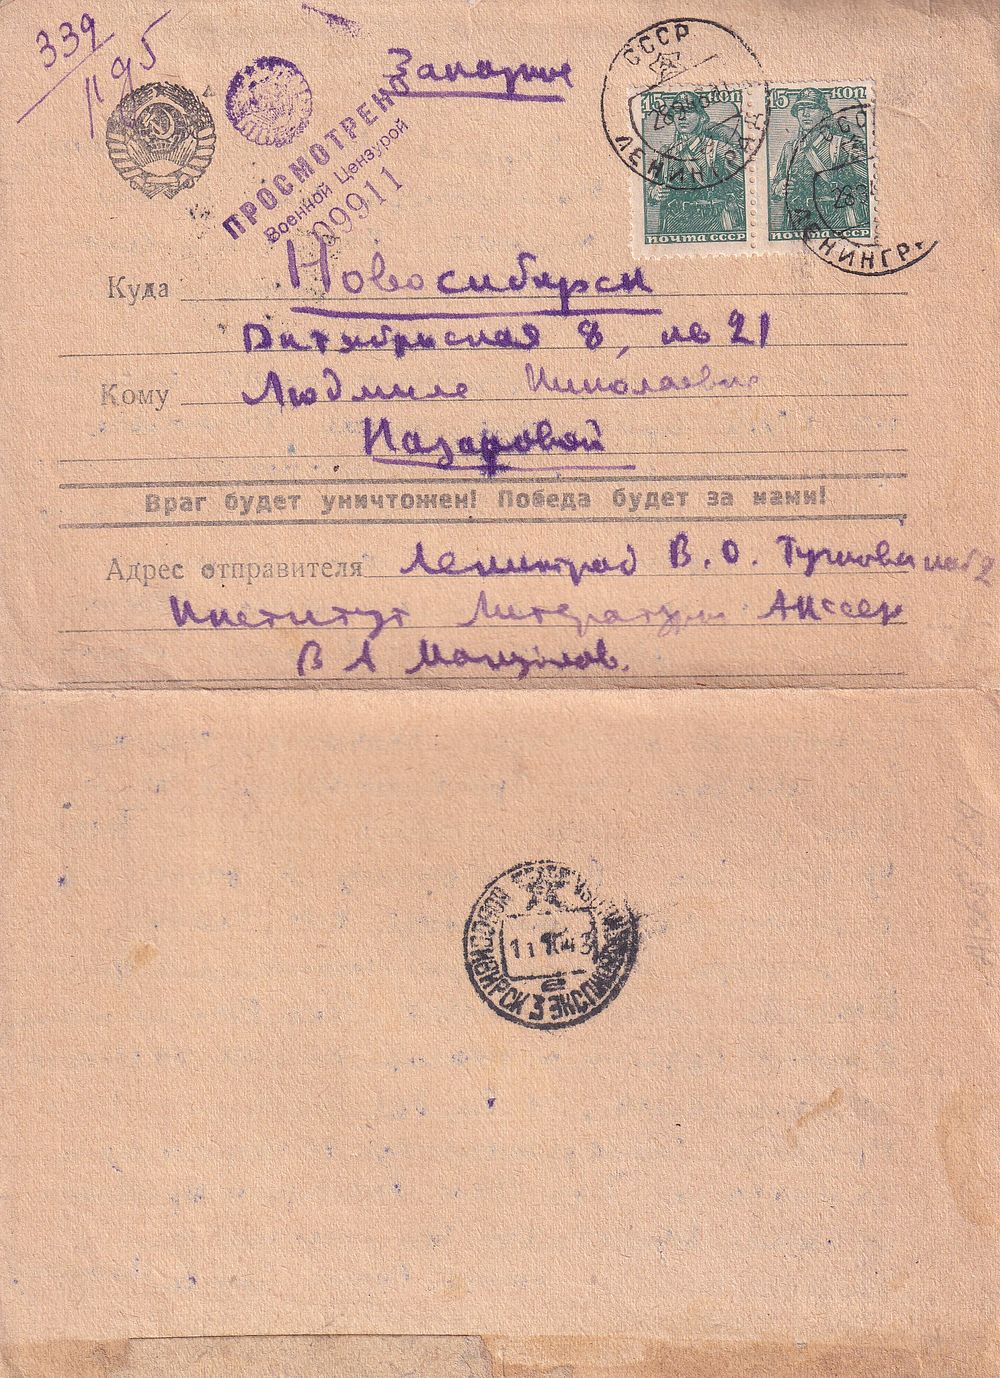 339
1195
Заказное
ПРОСМОТРЕНО
Военной Цензурой
09911
СССР
ЛЕНИНГРАД
15 КОП
15 КОП
ПОЧТА СССР
ПОЧТА СССР
ЛЕНИНГР.
Куда Новосибирск
Октябрьская 8, кв 21
Кому Людмиле Николаевне
Назаровой
Враг будет уничтожен! Победа будет за нами!
Адрес отправителя Ленинград В. О. Тучкова наб 2
Институт Литературы АН СССР
В А Мануйлов.
НОВОСИБИРСК 3 ЭКСПЕДИЦИЯ